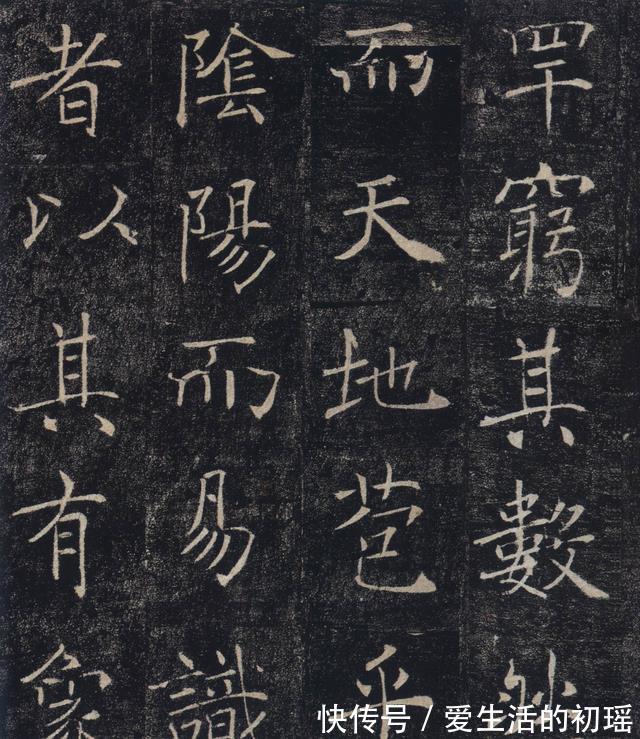 罕窮其數然
而天地苞乎
陰陽而易識
者以其有象
快传号 / 爱生活的初瑶